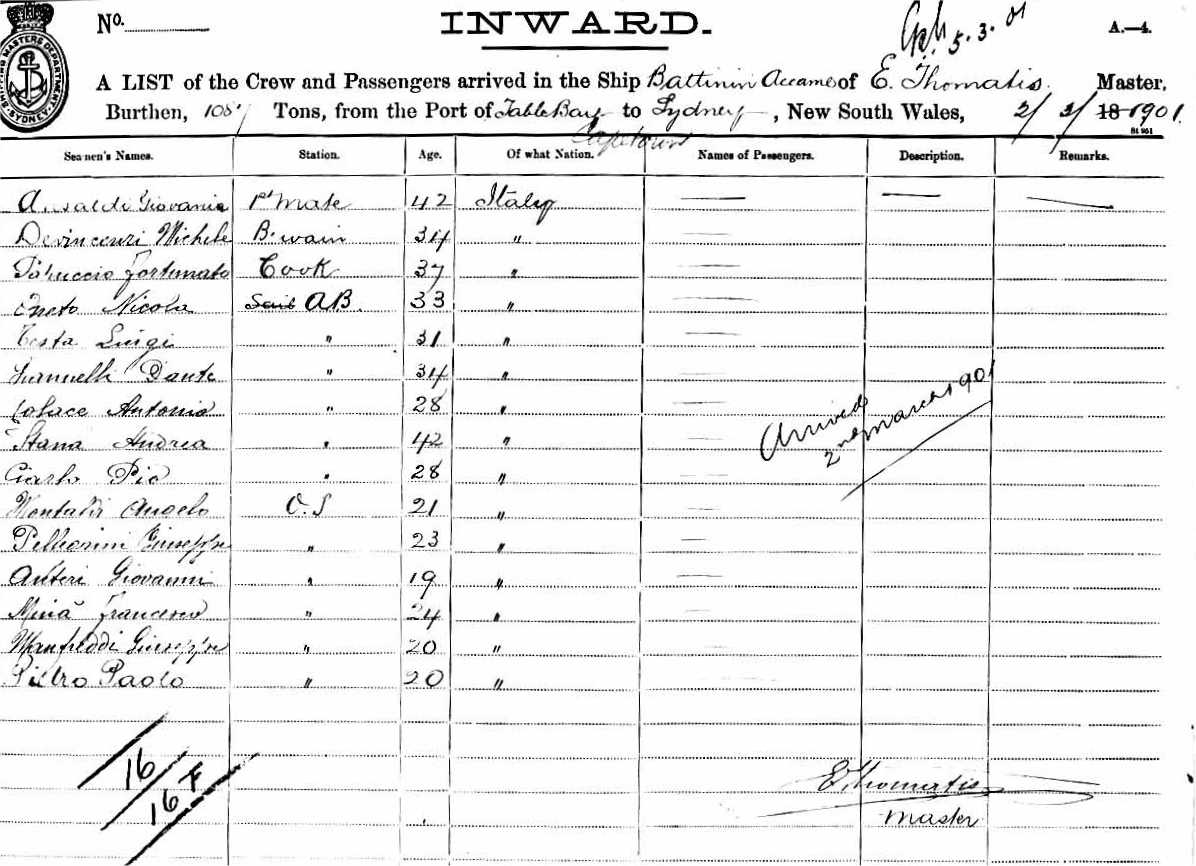 No. INWARD. 5.3.01 A.—4.
A LIST of the Crew and Passengers arrived in the Ship Battinin Accame of E. Thomatis Master,
Burthen, 108 Tons, from the Port of Table Bay to Sydney, New South Wales, 2/3/ 18 1901.
Capetown
Seamen's Names. Station. Age. Of what Nation. Names of Passengers. Description. Remarks.
Giovanni 1st Mate 42 Italy — — —
Devincenzi Michele B. swain 34 " —
Fortunato Cook 37 " —
Nicola A.B. 33 " —
Testa Luigi " 31 " —
Dante " 34 " —
Antonio " 28 " —
Stana Andrea " 42 " —
Ciarlo Pio " 28 " —
Angelo O.S 21 " —
Pellerini Giuseppe " 23 " —
Anteri Giovanni " 19 " —
Minà Francesco " 24 " —
Manfreddi Giuseppe " 20 " —
Pietro Paolo " 20 "
Arrived
2nd March 1901
16
16 F
E Thomatis
Master
SHIPPING MASTERS DEPARTMENT
SYDNEY